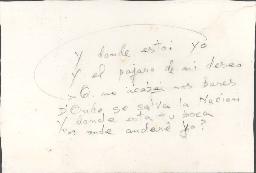 Y donde estoi yo
Y el pajaro de mi deseo
O. no nos bares
se salva la Nacion
Y donde esta tu boca
onde anderé yo?